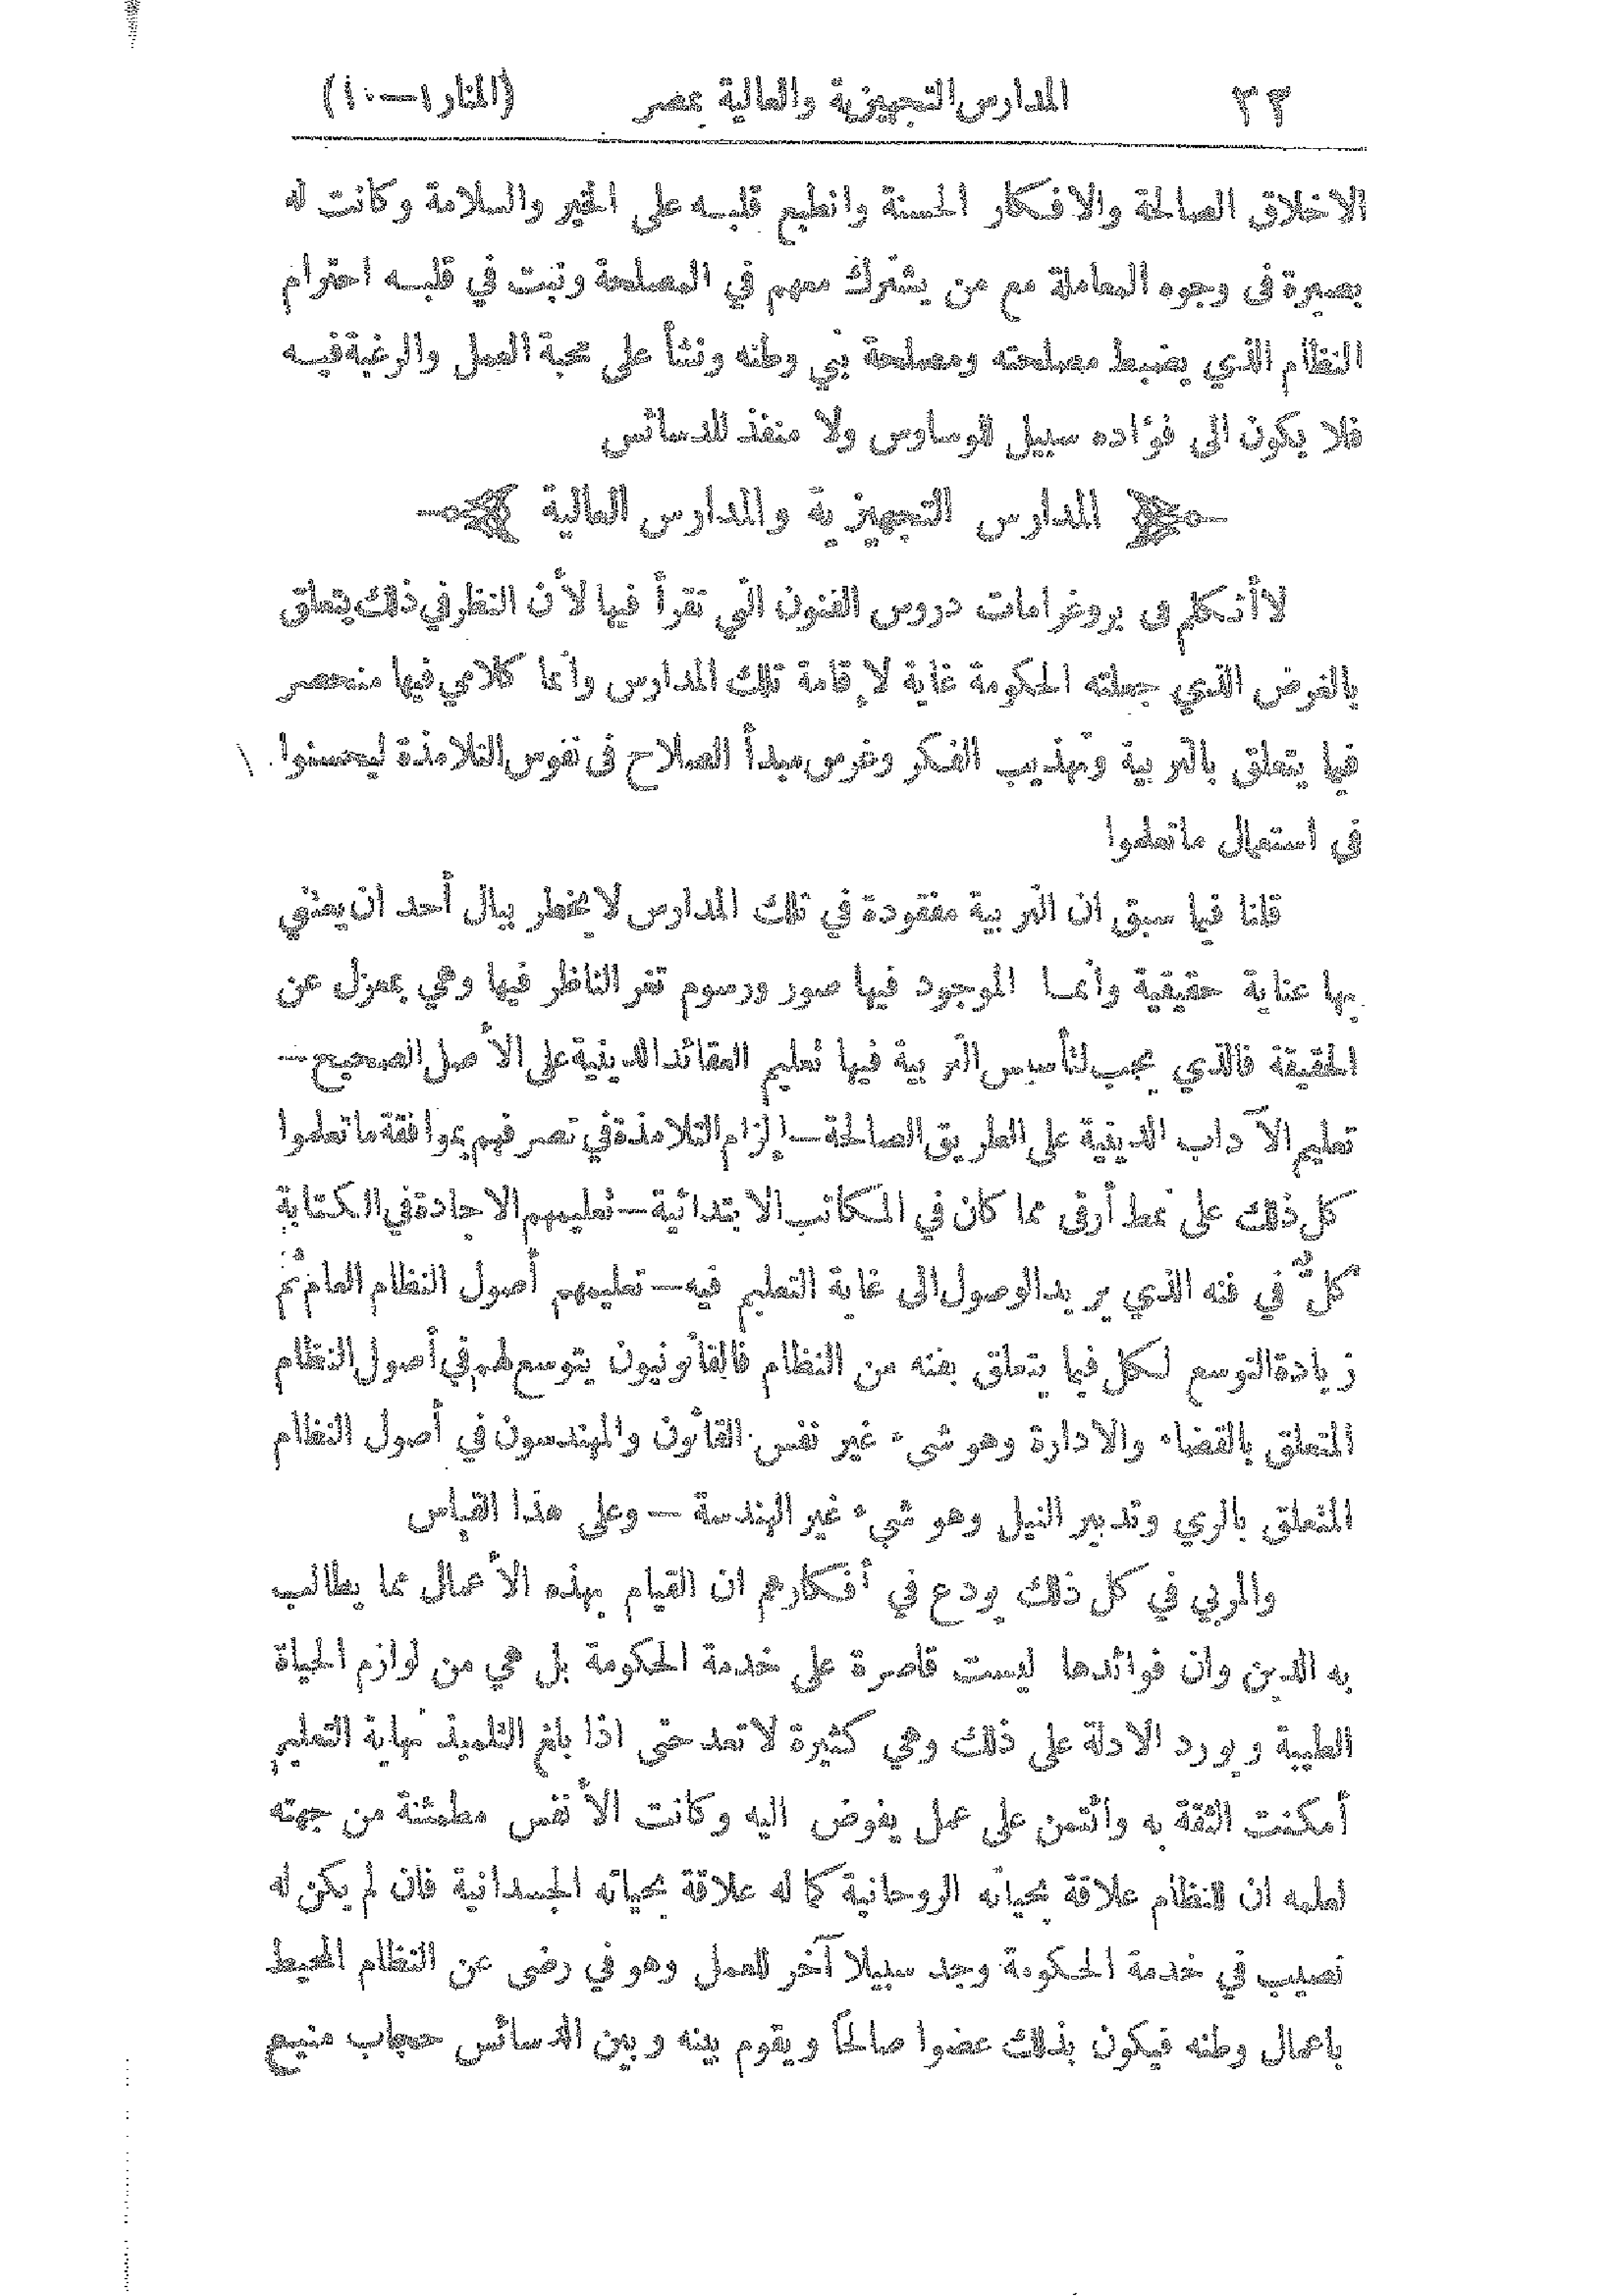 ٣٣ المدارس التجهيزية والعالية بمصر (المنار ١—١٠)
الاخلاق الصالحة والافكار الحسنة وانطبع قلبه على الخير والسلامة وكانت له
بصيرة فى وجوه المعاملة مع من يشترك معهم في المصلحة وثبت في قلبه احترام
النظام الذي يضبط مصلحته ومصلحة بني وطنه ونشأ على محبة العمل والرغبة فيه
فلا يكون الى فؤاده سبيل للوساوس ولا منفذ للدسائس
المدارس التجهيزية والمدارس العالية
لا أتكلم فى بروغرامات دروس الفنون التي تقرأ فيها لأن النظر في ذلك يتعلق
بالغرض الذي جعلته الحكومة غاية لإقامة تلك المدارس وانما كلامي فيها منحصر
فيما يتعلق بالتربية وتهذيب الفكر وغرس مبدأ الصلاح فى نفوس التلامذة ليحسنوا
في استعمال ما تعلموا
قلنا فيما سبق ان التربية مفقودة في تلك المدارس لا يخطر ببال أحد ان يعتني
بها عناية حقيقية وانما الموجود فيها صور ورسوم تغر الناظر فيها وهي بمعزل عن
الحقيقة فالذي يجب لتأسيس التربية فيها تعليم العقائد الدينية على الأصل الصحيح —
تعليم الآداب الدينية على الطريق الصالحة — إلزام التلامذة في تصرفهم بموافقة ما تعلموا
كل ذلك على نمط أرقى مما كان في المكاتب الابتدائية — تعليمهم الاجادة في الكتابة
كلٌّ في فنه الذي يريد الوصول الى غاية التعليم فيه — تعليمهم أصول النظام العام ثم
زيادة التوسع لكل فيما يتعلق بفنه من النظام فالقانونيون يتوسع لهم في أصول النظام
المتعلق بالقضاء والادارة وهو شيء غير نفس القانون والمهندسون في أصول النظام
المتعلق بالري وتدبير النيل وهو شيء غير الهندسة — وعلى هذا القياس
والمربي في كل ذلك يودع في أفكارهم ان القيام بهذه الأعمال مما يطالب
به الدين وان فوائدها ليست قاصرة على خدمة الحكومة بل هي من لوازم الحياة
الطيبة ويورد الادلة على ذلك وهي كثيرة لا تعد حتى اذا بلغ التلميذ نهاية التعليم
أمكنت الثقة به وائتمن على عمل يفوض اليه وكانت الأنفس مطمئنة من جهته
لعلمه ان للنظام علاقة بحياته الروحانية كما له علاقة بحياته الجسدانية فان لم يكن له
نصيب في خدمة الحكومة وجد سبيلا آخر للعمل وهو في رضى عن النظام المحيط
باعمال وطنه فيكون بذلك عضوا صالحًا ويقوم بينه وبين الدسائس حجاب منيع